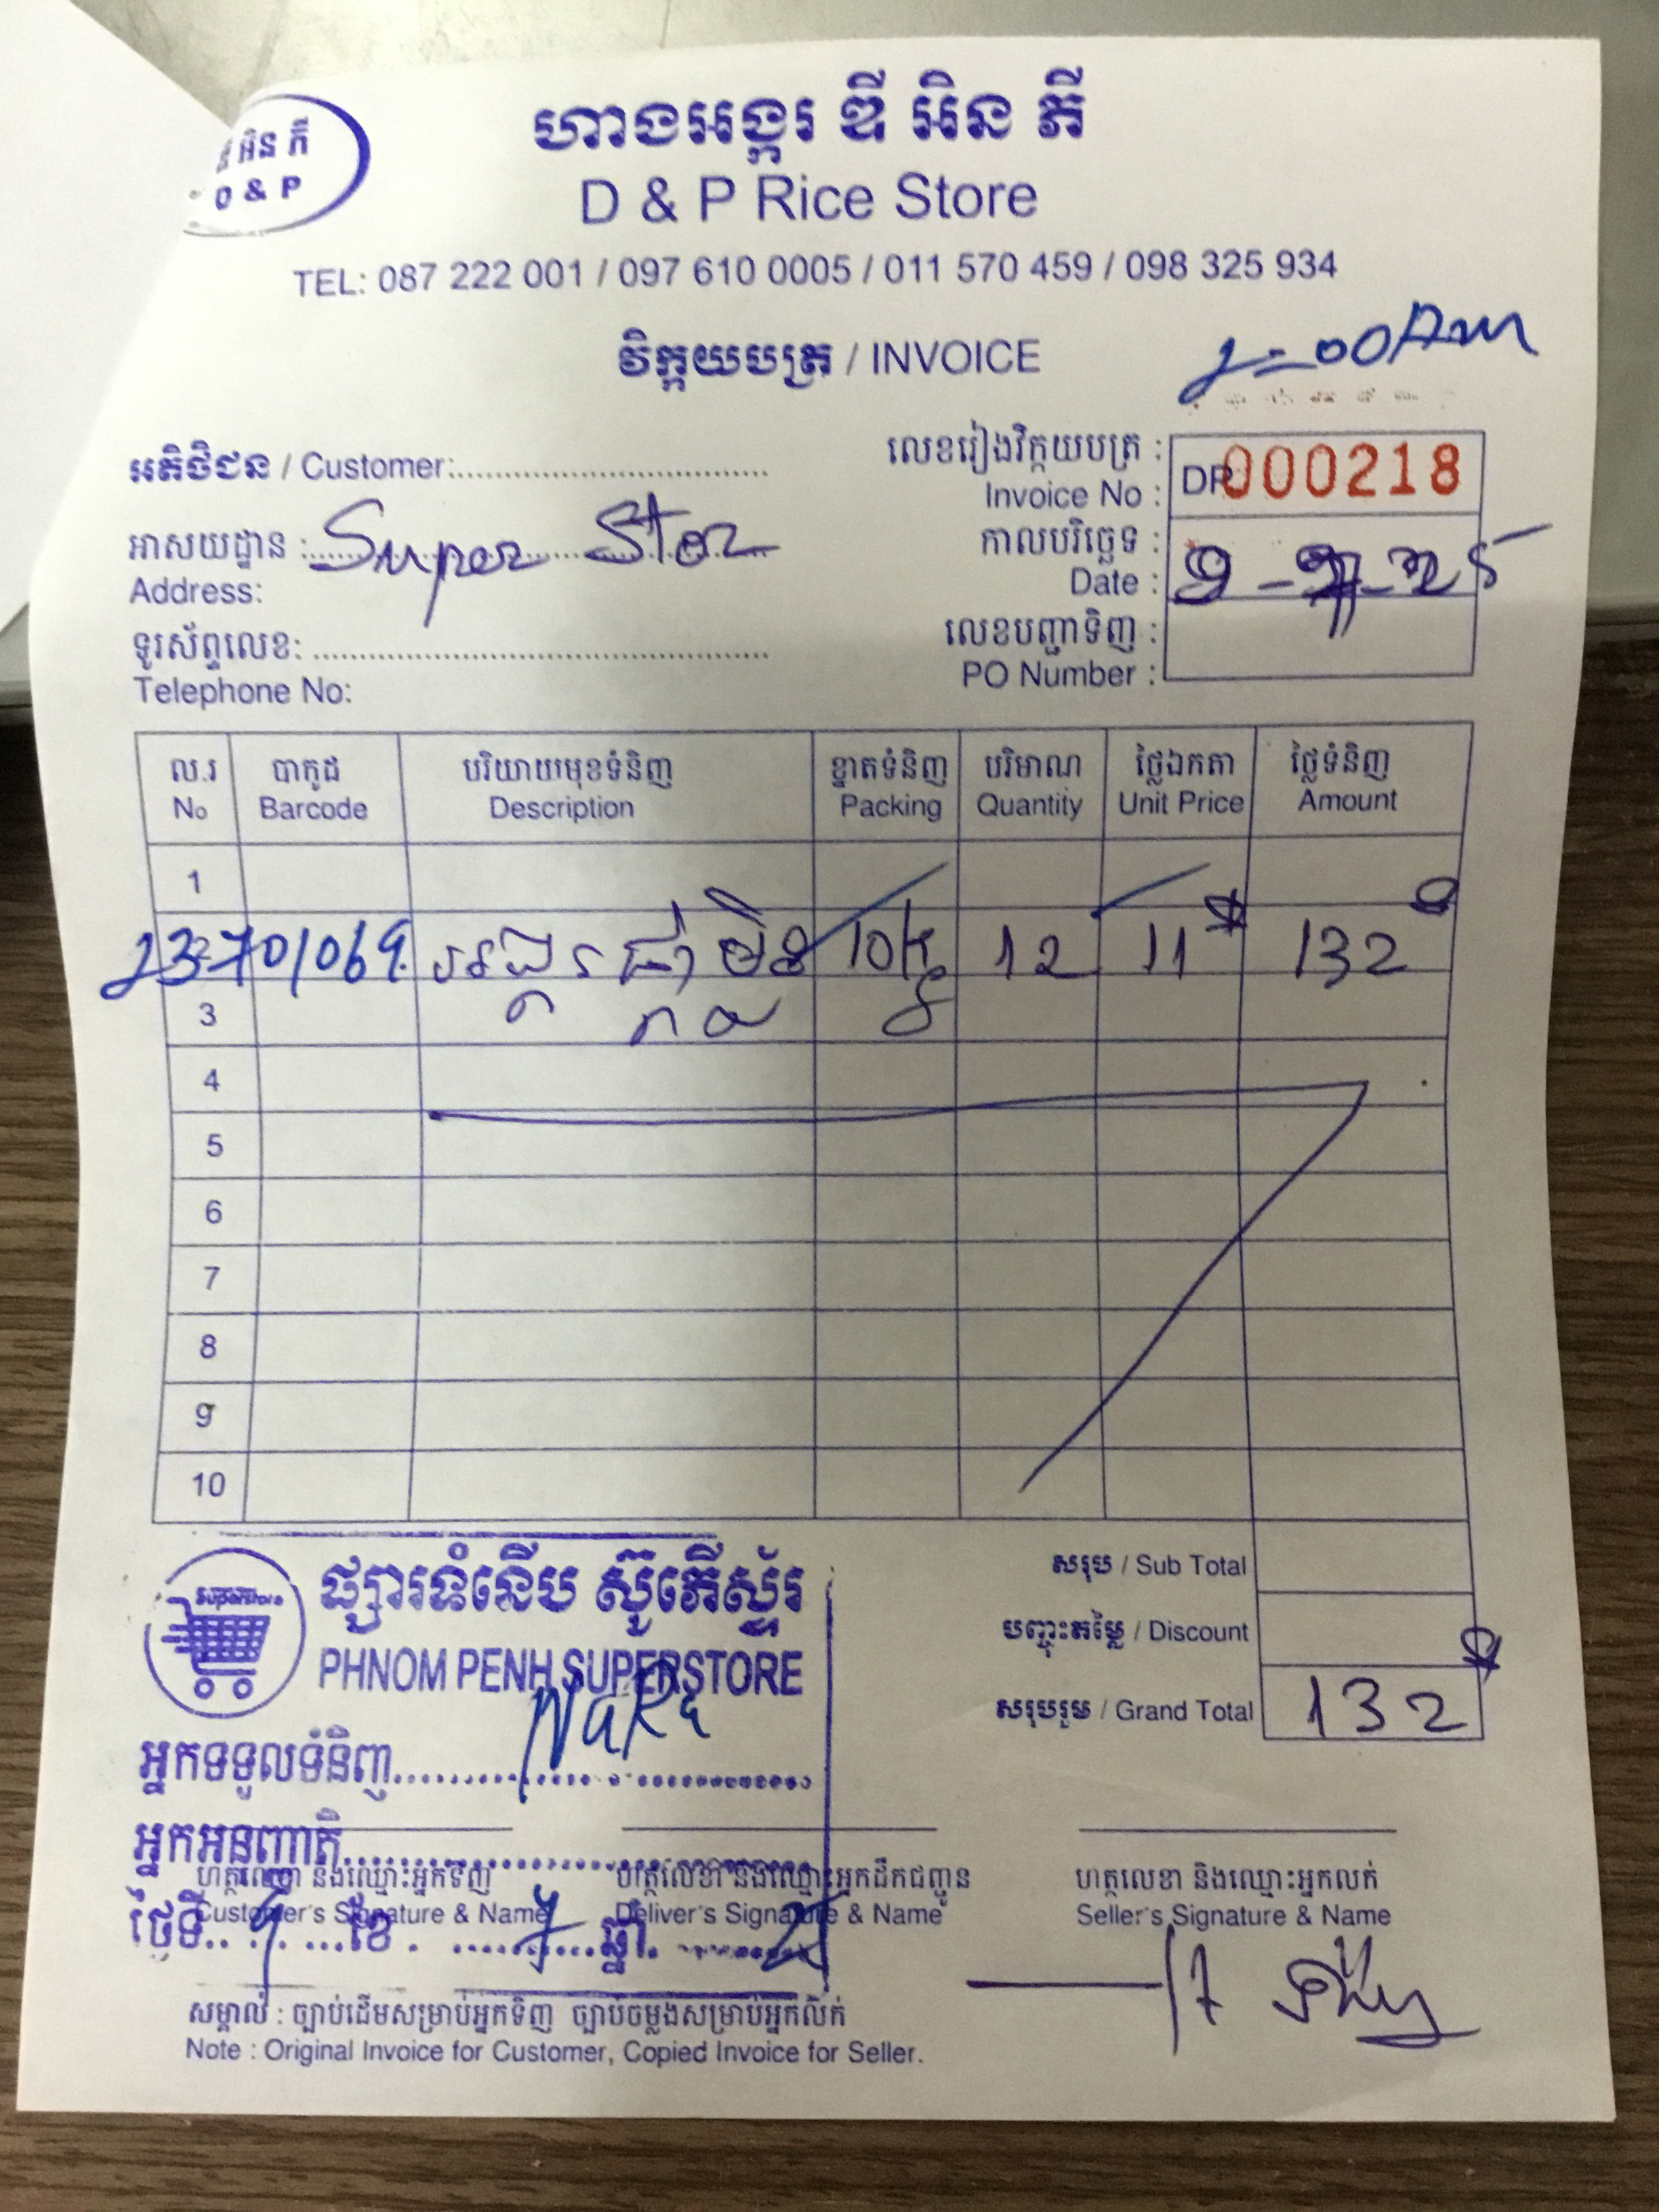 អិន ភី
D & P
ហាងអង្ករ ឌី អិន ភី
D & P Rice Store
TEL: 087 222 001 / 097 610 0005 / 011 570 459 / 098 325 934
វិក្កយបត្រ / INVOICE
អតិថិជន / Customer:
លេខរៀងវិក្កយបត្រ :
Invoice No :
DP 000218
អាសយដ្ឋាន : Super Stor
Address:
កាលបរិច្ឆេទ :
Date :
ទូរស័ព្ទលេខ:
Telephone No:
លេខបញ្ជាទិញ :
PO Number :
ល.រ បាកូដ បរិយាយមុខទំនិញ ខ្នាតទំនិញ បរិមាណ ថ្លៃឯកតា ថ្លៃទំនិញ
No Barcode Description Packing Quantity Unit Price Amount
1
អង្ករ 12 11$ 132
3
4
5
6
7
8
9
10
សរុប / Sub Total
បញ្ចុះតម្លៃ / Discount
សរុបរួម / Grand Total 132$
superstore
ផ្សារទំនើប ស៊ូភើស្ទ័រ
PHNOM PENH SUPERSTORE
អ្នកទទួលទំនិញ
អ្នកអនុញាតិ
ថ្ងៃទី ខែ ឆ្នាំ
ហត្ថលេខា និងឈ្មោះអ្នកទិញ
Customer's Signature & Name
ហត្ថលេខា និងឈ្មោះអ្នកដឹកជញ្ជូន
Deliver's Signature & Name
ហត្ថលេខា និងឈ្មោះអ្នកលក់
Seller's Signature & Name
សម្គាល់ : ច្បាប់ដើមសម្រាប់អ្នកទិញ ច្បាប់ចម្លងសម្រាប់អ្នកលក់
Note : Original Invoice for Customer, Copied Invoice for Seller.